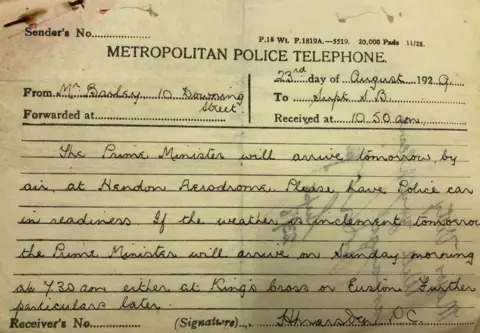 Sender's No.
P.18 Wt. P.1819A.—5519. 20,000 Pads 11/28.
METROPOLITAN POLICE TELEPHONE.
23rd day of August 1929.
From Mr. Barley 10 Downing Street.
To Supt A.B.
Forwarded at
Received at 10.50 am.
The Prime Minister will arrive tomorrow, by
air, at Hendon Aerodrome. Please have Police car
in readiness If the weather is inclement tomorrow
the Prime Minister will arrive on Sunday morning
at 7.30 am either at King's Cross or Euston. Further
particulars later.
Receiver's No.
(Signature) PC